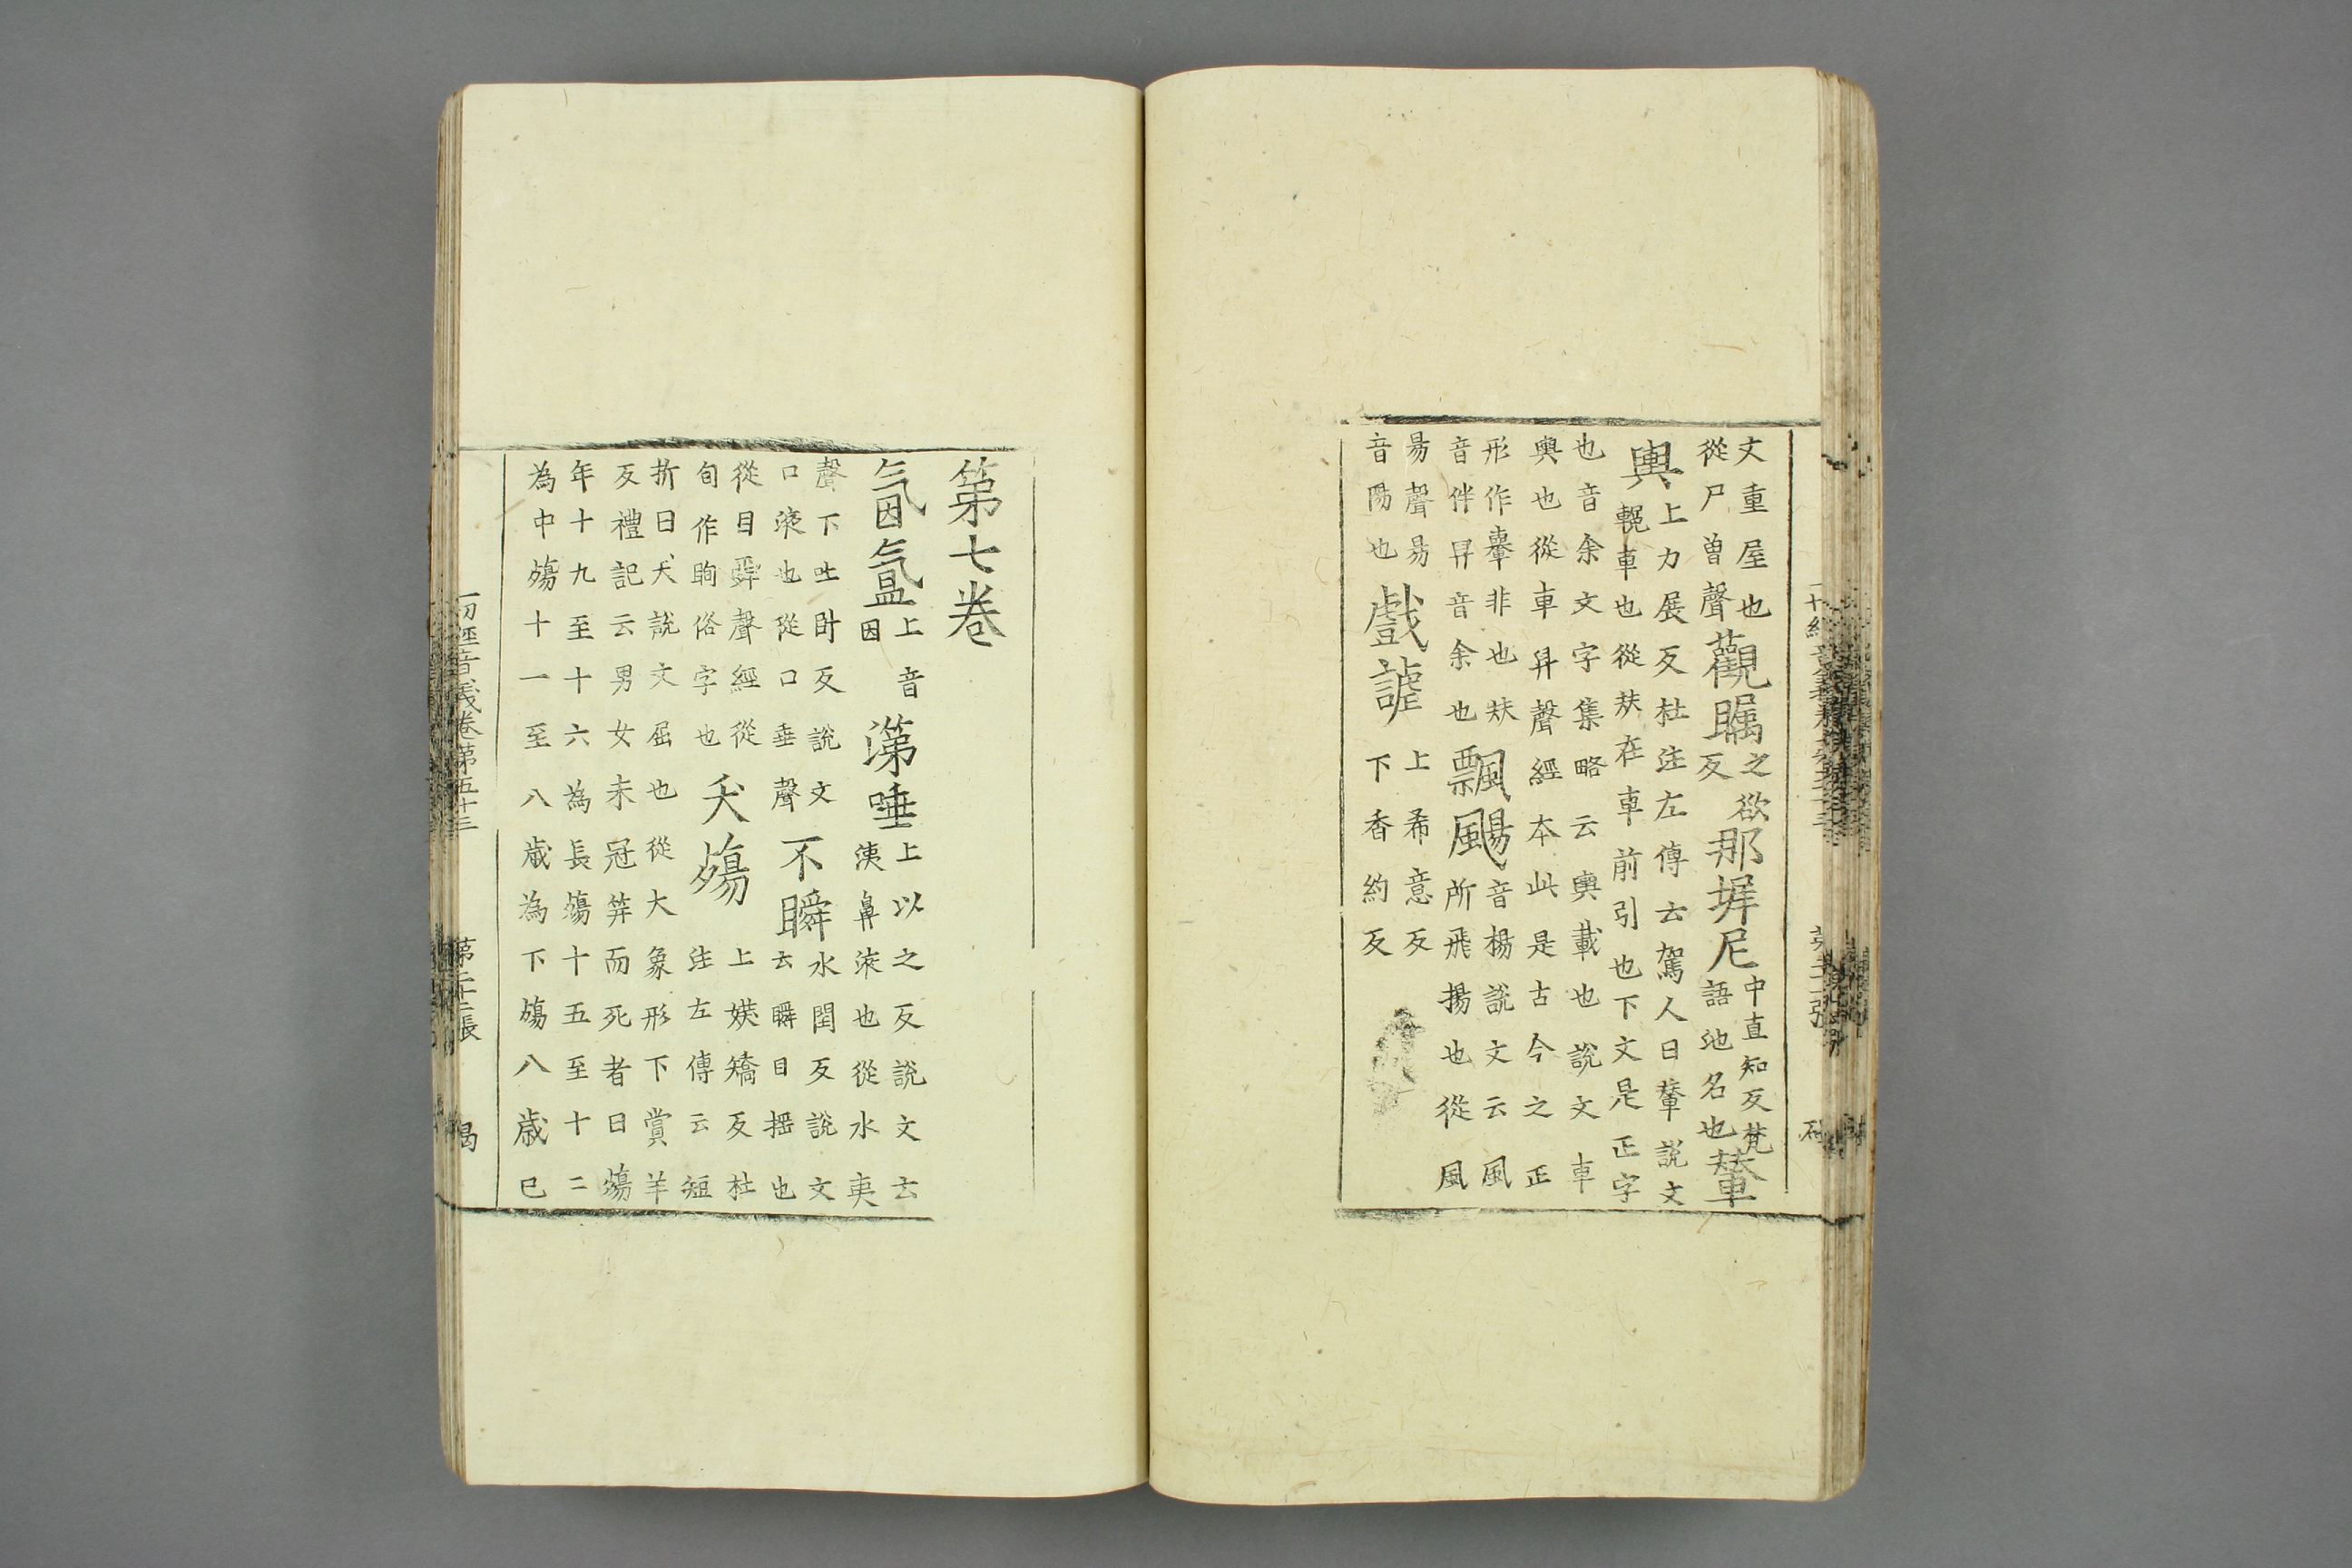 文重屋也
從尸曽聲觀矚之欲反那墀尼中直知反梵語地名也輦
輿上力展反杜注左傳云駕人曰輦說文
輓車也從㚘在車前引也下文是正字
也音余文字集略云輿載也說文車
輿也從車舁聲經本此是古今之正
形作轝非也㚘
音伴舁音余也飄颺音楊說文云風
所飛揚也從風
昜聲昜
音陽也戲謔上希意反
下香約反
第七卷
氤氳上音
因㳶唾上以之反說文云
洟鼻液也從水夷
聲下吐卧反說文
口液也從口垂聲不瞬水閏反說文
云瞬目揺也
從目舜聲經從
旬作眴俗字也夭殤上媖矯反杜
注左傳云短
折曰夭說文屈也從大象形下賞羊
反禮記云男女未冠笄而死者曰殤
年十九至十六為長殤十五至十二
為中殤十一至八歳為下殤八歳已
一切經音義卷第五十三 第二十二張 曷